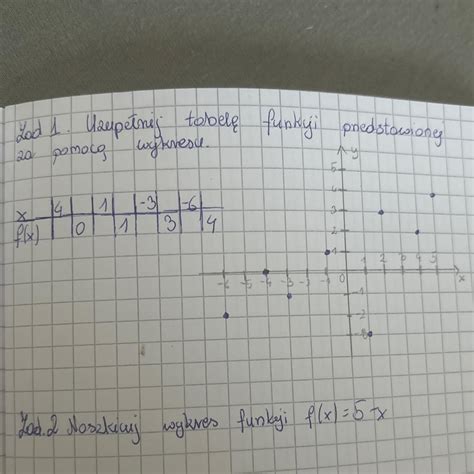 Zad 1. Uzupełnij tabelę funkcji przedstawionej
za pomocą wykresu.
x 4 1 -3 -6
f(x) 0 1 3 4
y
5
4
3
2
1
-6 -5 -4 -3 -2 -1 0 1 2 3 4 5 x
-1
-2
-3
Zad.2 Naszkicuj wykres funkcji f(x)=5-x